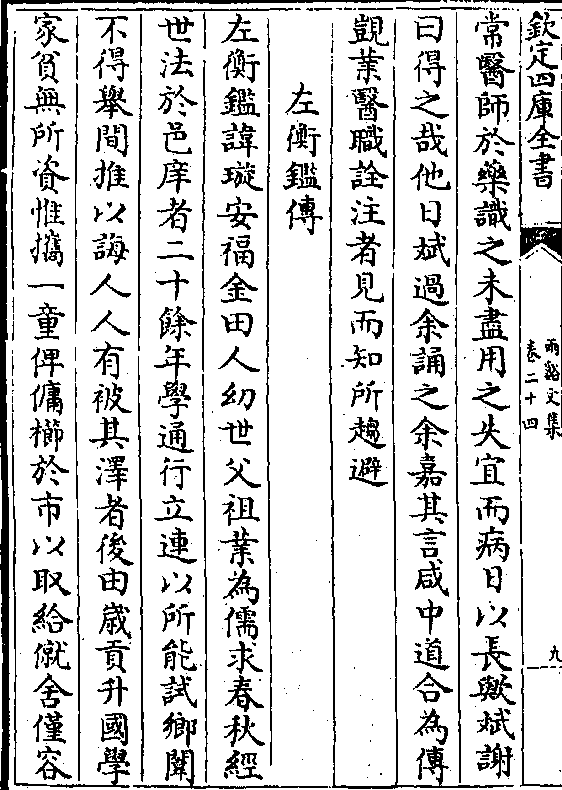 欽定四庫全書
兩谿文集
卷二十四
九
常醫師於藥識之未盡用之失宜而病日以長歟斌謝
曰得之哉他日斌過余誦之余嘉其言咸中道合為傳
覬業醫職詮注者見而知所趨避
左衡鑑傳
左衡鑑諱璇安福金田人幼世父祖業為儒求春秋經
世法於邑庠者二十餘年學通行立連以所能試鄉闈
不得舉間推以誨人人有被其澤者後由歲貢升國學
家貧無所資惟攜一童俾傭櫛於市以取給僦舍僅容